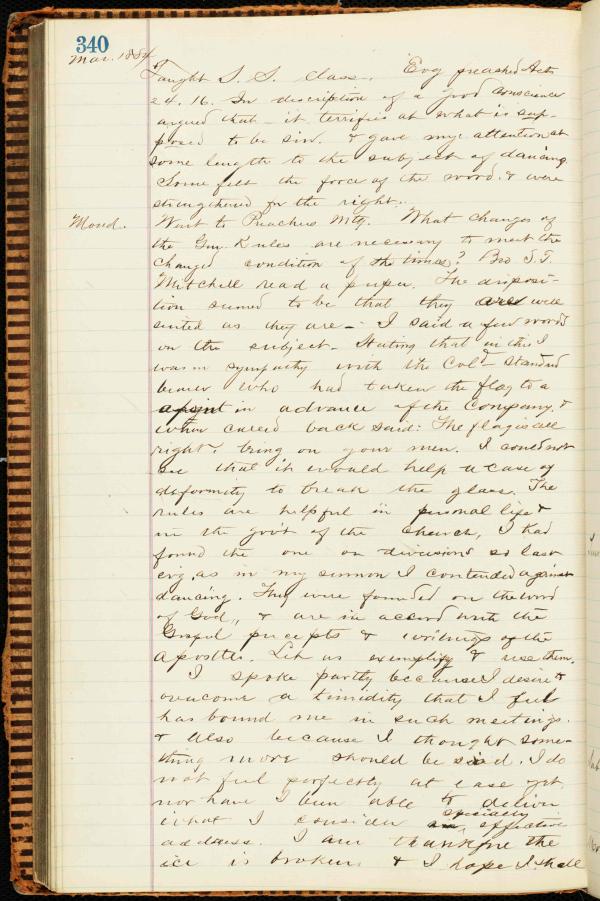 340
Mar. 1884
Taught S. S. class. Evg preached Acts
24. 16. In description of a good conscience
argued that it terrifies at what is sup-
posed to be sin. & gave my attention at
some length to the subject of dancing.
Some felt the force of the word. & were
strengthened for the right.
Mond. Went to Preachers Mtg. What changes of
the Gen. Rules are necessary to meet the
changed condition of the times? Bro S. T.
Mitchell read a paper. The disposi-
tion seemed to be that they are well
suited as they are - I said a few words
on the subject - Stating that in this I
was in sympathy with the Cold Standard
bearer who had taken the flag to a
point in advance of the Company, &
when called back said: The flag is all
right, bring on your men. I could not
see that it would help a case of
deformity to break the glass. The
rules are helpful in personal life &
in the gov't of the church, I had
found the one on diversions so last
evg, as in my sermon I contended against
dancing. They were founded on the word
of God, & are in accord with the
Gospel precepts & writings of the
apostles. Let us exemplify & use them.
I spoke partly because I desire to
overcome a timidity that I feel
has bound me in such meetings.
& also because I thought some-
thing more should be said. I do
not feel perfectly at ease yet,
nor have I been able to deliver
what I consider specially effective
address. I am thankful the
ice is broken & I hope I shall